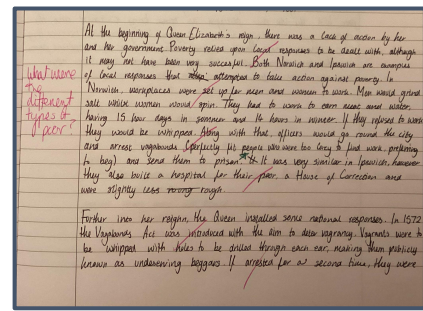 At the beginning of Queen Elizabeth's reign, there was a lack of action by her
and her government Poverty relied upon local responses to be dealt with, although
it may not have been very successful. Both Norwich and Ipswich are examples
of local responses that attempted to take action against poverty. In
Norwich, workplaces were set up for men and women to work. Men would grind
salt whilst women would spin. They had to work to earn meat and water,
having 15 hour days in summer and 14 hours in winter. If they refused to work
they would be whipped. Along with that, officers would go round the city
and arrest vagabonds (perfectly fit people who were too lazy to find work, preferring
to beg) and send them to prison. It was very similar in Ipswich, however
they also built a hospital for their poor, a House of Correction and
were slightly less rough.
What were
the
different
types of
poor?
Further into her reign, the Queen installed some national responses. In 1572
the Vagabonds Act was introduced with the aim to deter vagrancy. Vagrants were to
be whipped with holes to be drilled through each ear, making them publicly
known as undeserving beggars. If arrested for a second time, they were